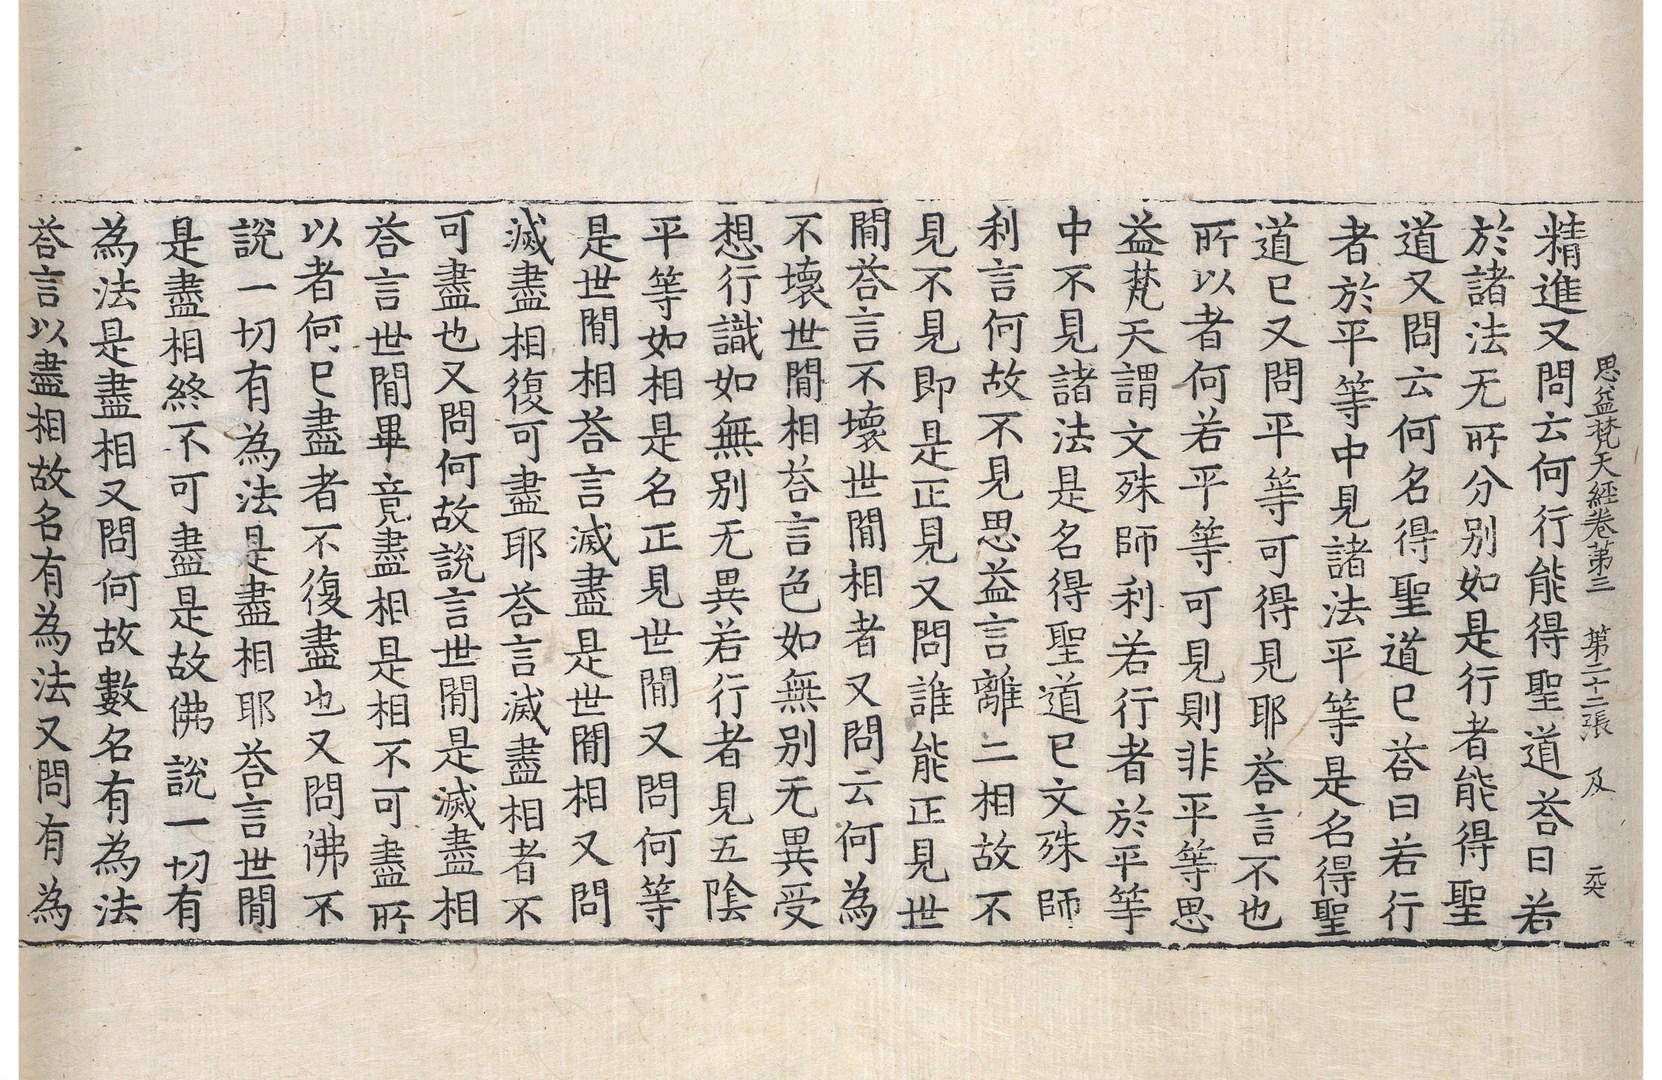 思益梵天經卷第三　第二十二張　及
精進又問云何行能得聖道荅曰若
於諸法无所分別如是行者能得聖
道又問云何名得聖道已荅曰若行
者於平等中見諸法平等是名得聖
道已又問平等可得見耶荅言不也
所以者何若平等可見則非平等思
益梵天謂文殊師利若行者於平等
中不見諸法是名得聖道已文殊師
利言何故不見思益言離二相故不
見不見即是正見又問誰能正見世
閒荅言不壞世閒相者又問云何為
不壞世閒相荅言色如無別无異受
想行識如無別无異若行者見五陰
平等如相是名正見世閒又問何等
是世閒相荅言滅盡是世閒相又問
滅盡相復可盡耶荅言滅盡相者不
可盡也又問何故說言世閒是滅盡相
荅言世閒畢竟盡相是相不可盡所
以者何已盡者不復盡也又問佛不
說一切有為法是盡相耶荅言世閒
是盡相終不可盡是故佛說一切有
為法是盡相又問何故數名有為法
荅言以盡相故名有為法又問有為